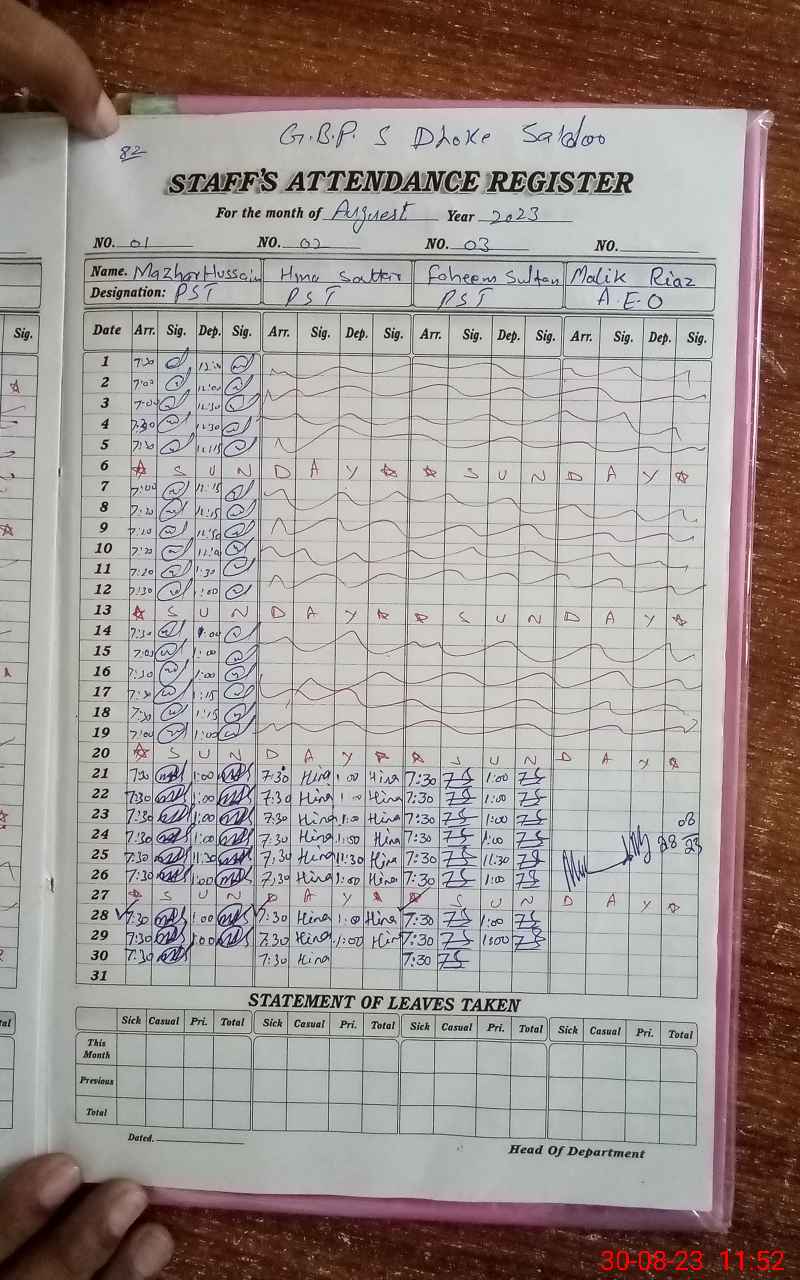 82
G.B.P. S Dhoke Saldoo
STAFF'S ATTENDANCE REGISTER
For the month of Auguest Year 2023
NO. 01 NO. 02 NO. 03 NO.
Name. Mazhar Hussain Hina Faheem Sultan Malik Riaz
Designation: PST PST PST A.E.O
Sig. Date Arr. Sig. Dep. Sig. Arr. Sig. Dep. Sig. Arr. Sig. Dep. Sig. Arr. Sig. Dep. Sig.
1 7:30
2 7:00 11:00
3 7:00 11:30
4 7:30 11:30
5 7:30 11:15
6 S U N D A Y S U N D A Y
7 7:00 11:15
8 7:20 11:15
9 7:20 11:30
10 7:20
11 7:30 1:30
12 7:30 1:00
13 S U N D A Y S U N D A Y
14 7:30 1:00
15 7:00 1:00
16 7:30 1:00
17 7:30 1:15
18 7:30 1:15
19 7:00 1:00
20 S U N D A Y S U N D A Y
21 7:30 1:00 7:30 Hina 1:00 Hina 7:30 1:00
22 7:30 1:00 7:30 Hina 1:00 Hina 7:30 1:00
23 7:30 1:00 7:30 Hina 1:00 Hina 7:30 1:00
24 7:30 1:00 7:30 Hina 1:00 Hina 7:30 1:00
25 7:30 11:30 7:30 Hina 11:30 Hina 7:30 11:30 28 08 23
26 7:30 1:00 7:30 Hina 1:00 Hina 7:30 1:00
27 S U N D A Y S U N D A Y
28 7:30 1:00 7:30 Hina 1:00 Hina 7:30 1:00
29 7:30 1:00 7:30 Hina 1:00 Hina 7:30 1:00
30 7:30 7:30 Hina 7:30
31
STATEMENT OF LEAVES TAKEN
Sick Casual Pri. Total Sick Casual Pri. Total Sick Casual Pri. Total Sick Casual Pri. Total
This Month
Previous
Total
Dated.
Head Of Department
30-08-23 11:52